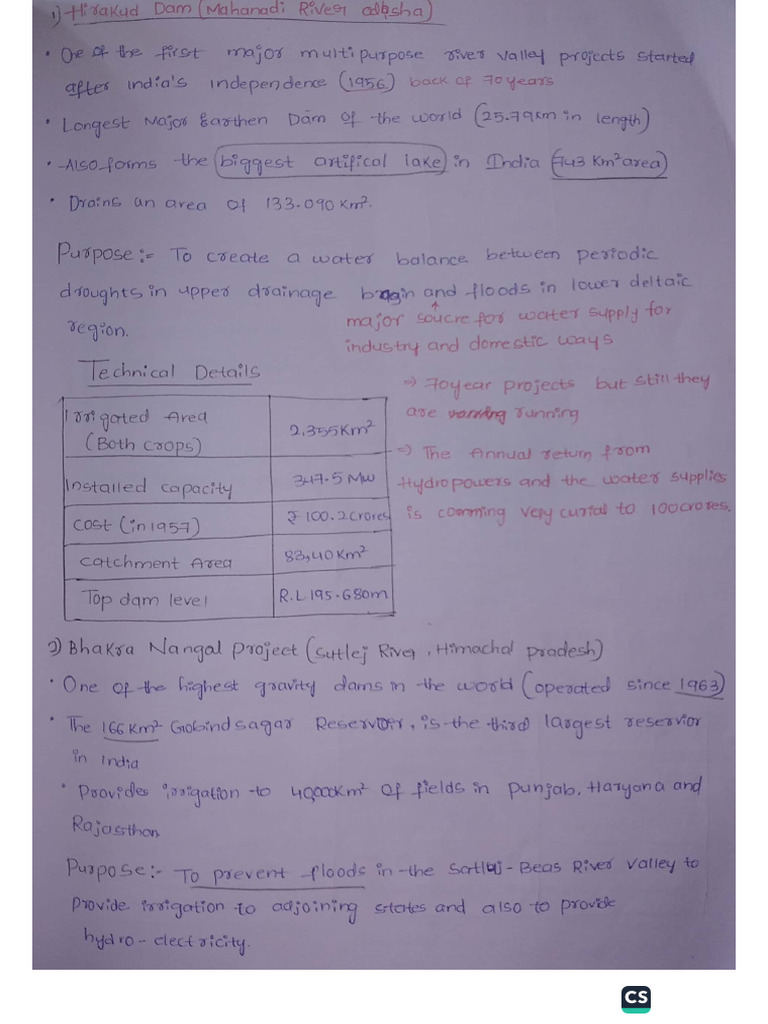 1) Hirakud Dam (Mahanadi River odisha)
• One of the first major multipurpose river valley projects started
after India's independence (1956) back of 70 years
• Longest Major Earthen Dam of the world (25.79km in length)
• Also forms the biggest artifical lake in India (743 Km² area)
• Drains an area of 133.090 Km².
Purpose:- To create a water balance between periodic
droughts in upper drainage basin and floods in lower deltaic
region.
major soucre for water supply for
industry and domestic ways
Technical Details
Irrigated Area
(Both crops)
2,355Km²
Installed capacity
347.5 MW
Cost (in 1957)
₹ 100.2 Crores
Catchment Area
83,40 Km²
Top dam level
R.L 195.680m
=> 70 year projects but still they
are running
=> The Annual return from
Hydropowers and the water supplies
is comming very curial to 100 crores.
2) Bhakra Nangal Project (Sutlej River, Himachal pradesh)
• One of the highest gravity dams in the world (operated since 1963)
• The 166 Km² Gobind sagar Reservoir, is the third largest reservior
in India
• Provides irrigation to 40,000Km² of fields in punjab, Haryana and
Rajasthan
Purpose:- To prevent floods in the Satluj - Beas River valley to
provide irrigation to adjoining states and also to provide
hydro-electricity.
CS